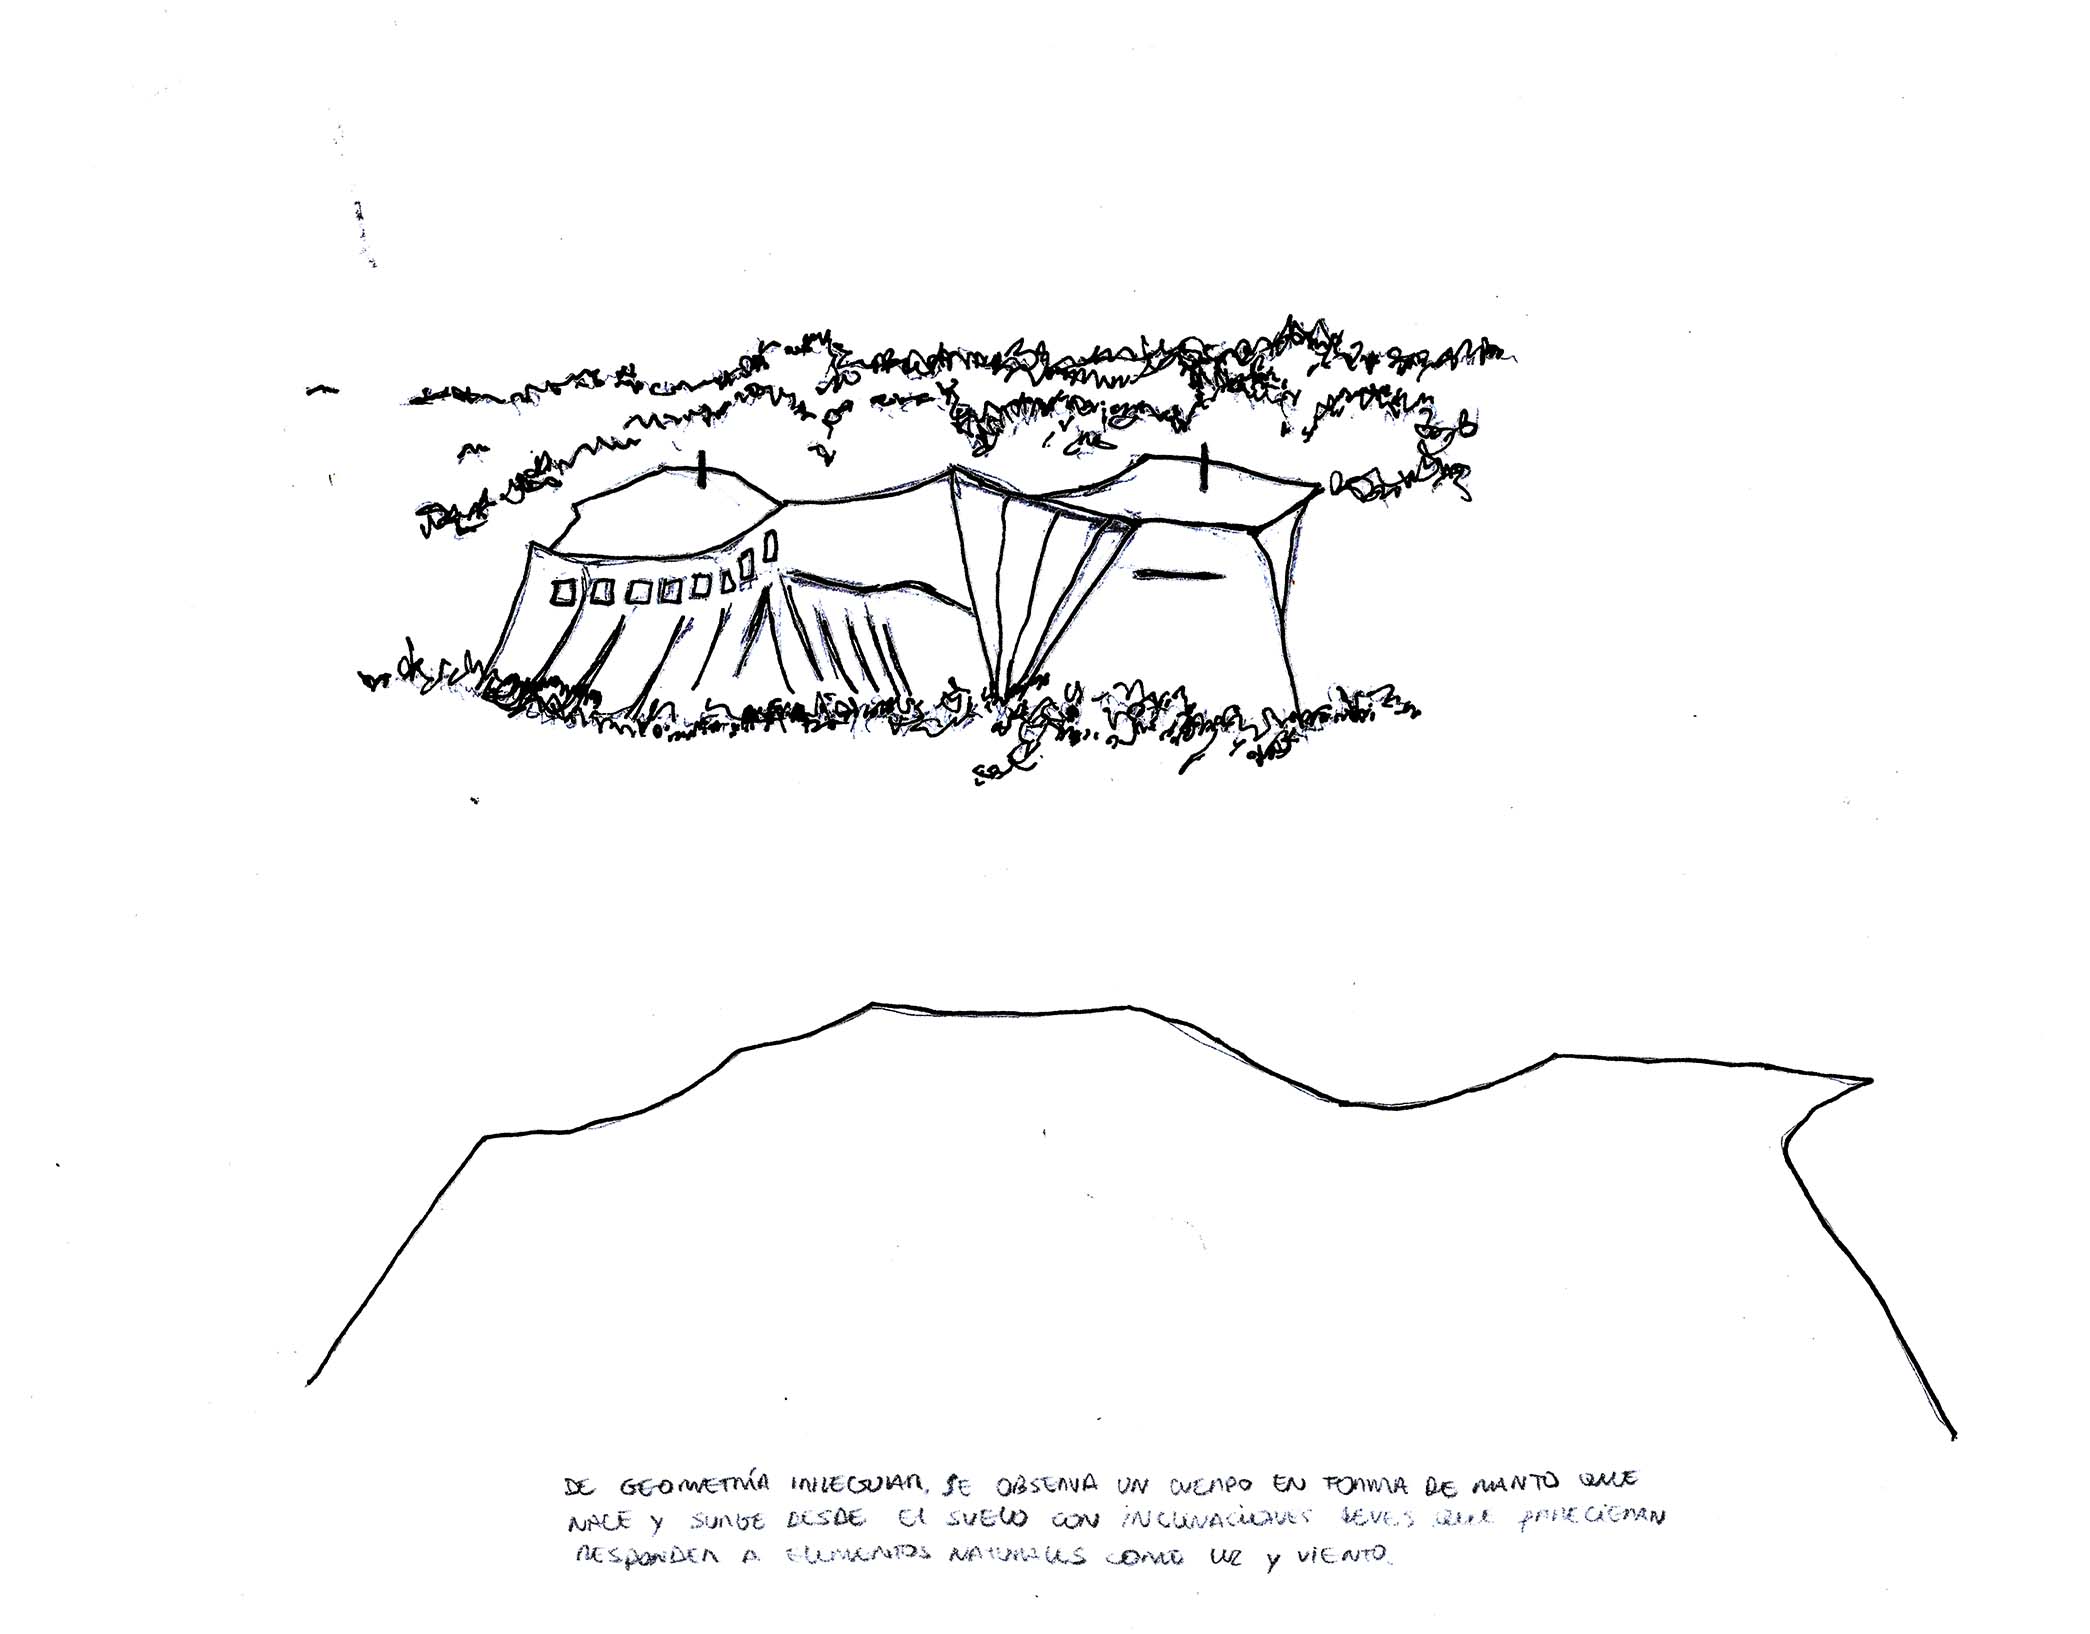 DE GEOMETRÍA IRREGULAR, SE OBSERVA UN CUERPO EN FORMA DE MANTO QUE
NACE Y SURGE DESDE El SUELO CON INCLINACIONES LEVES QUE PARECIERAN
RESPONDER A ELEMENTOS NATURALES COMO LUZ Y VIENTO.